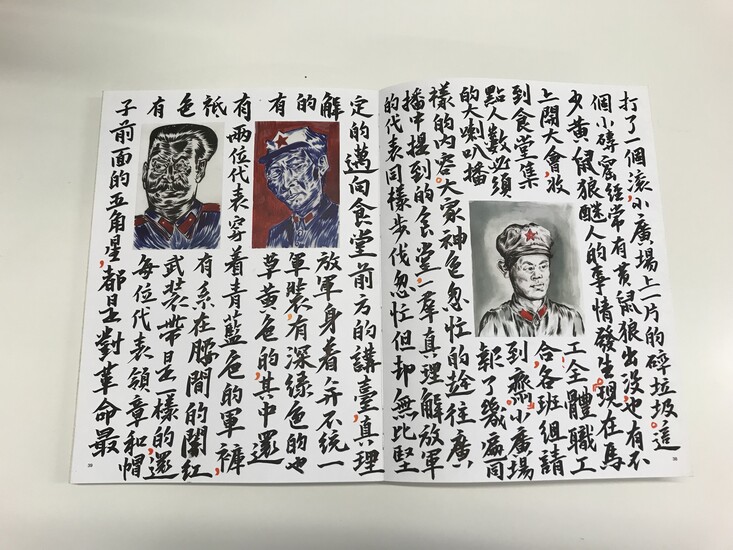 打了一個滾,小廣場上一片的碎垃圾。這
個小磚窰經常有黃鼠狼出没,也有不
少黄鼠狼醚人的事情發生。現在馬
上開大會,收工全體職工
到食堂集合,各班組請
點人數必須到齊,小廣場
的大喇叭播報了幾遍同
樣的内容。大家神色忽忙的趕往廣
播中提到的食堂,一羣真理解放軍
的代表同樣步伐忽忙但却無比堅
36
定的邁向食堂前方的講臺,真理
解放軍身着并不统一
的軍裝,有深綠色的也
有草黄色的,其中還
有兩位代表穿着青藍色的軍褲,
祗有系在腰間的闊紅
色武裝带是一樣的,還
有每位代表領章和帽
子前面的五角星,都是對革命最